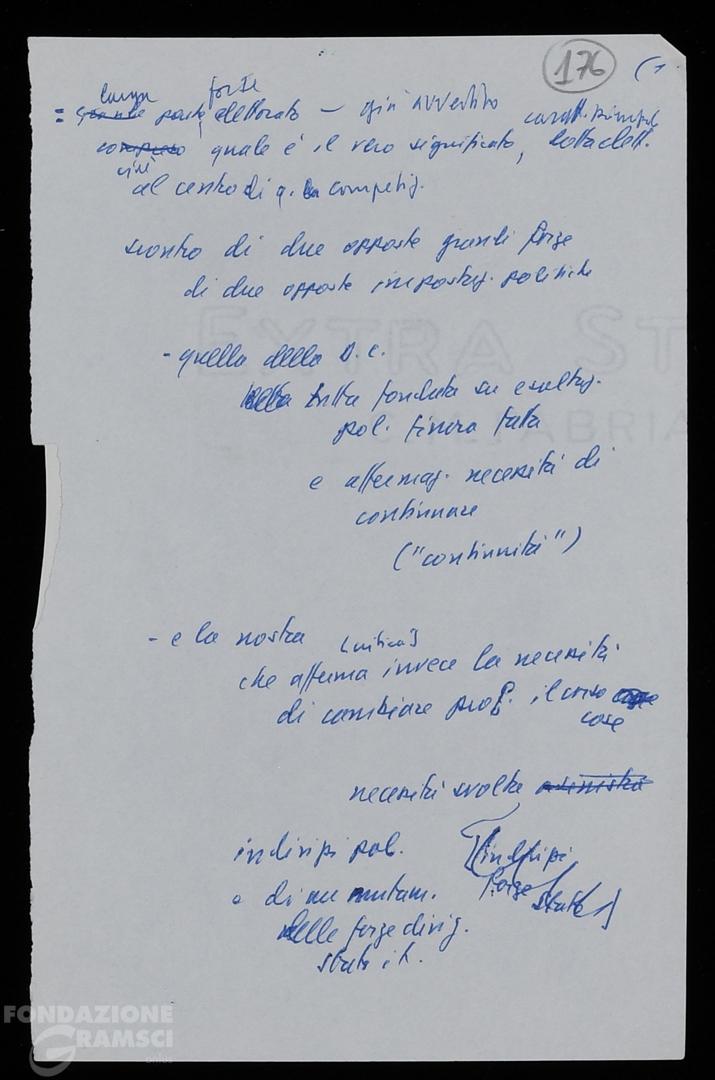 176 (1.
larga forte
= grande parte elettorato – già avvertito
compreso quale è il vero significato, lotta elett.
cioè
al centro di q. competiz.
scontro di due opposte grandi forze
di due opposte impostaz. politiche
- quella della D.C.
tutta fondata su esaltaz.
pol. finora fatta
e affermaz. necessità di
continuare
("continuità")
- e la nostra (critica)
che afferma invece la necessità
di cambiare prof. il corso
cose
necessità svolta a sinistra
indirizzi pol. [indirizzi
e di un mutam. forze
delle forze dirig. Stato]
stato it.
EXTRA ST
FABRIA
FONDAZIONE
GRAMSCI
onlus